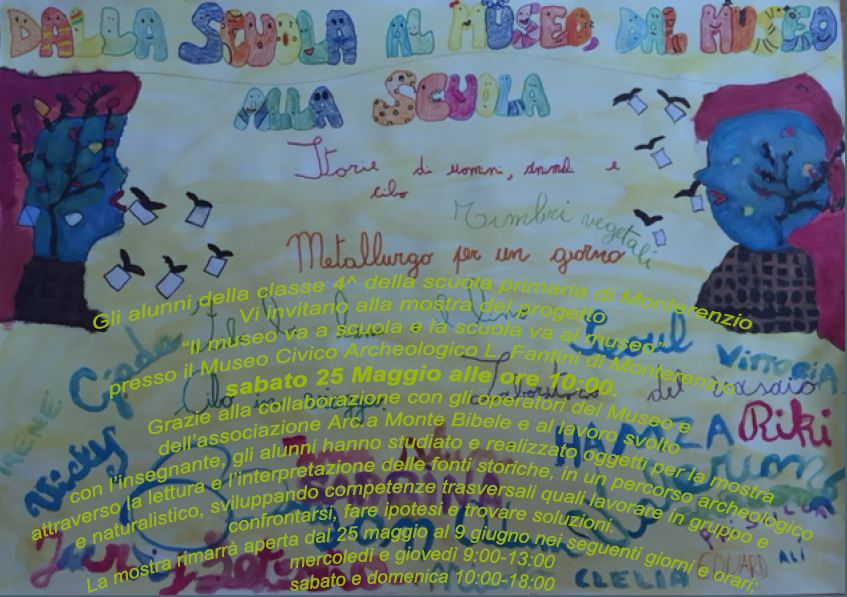 DALLA SCUOLA AL MUSEO, DAL MUSEO
ALLA SCUOLA
Storie di uomini, animali e
cibo
Timbri vegetali
Metallurgo per un giorno
Gli alunni della classe 4^ della scuola primaria di Monterenzio
Vi invitano alla mostra del progetto
“Il museo va a scuola e la scuola va al museo”
presso il Museo Civico Archeologico L. Fantini di Monterenzio
sabato 25 Maggio alle ore 10:00.
Grazie alla collaborazione con gli operatori del Museo e
dell’associazione Arc.a Monte Bibele e al lavoro svolto
con l’insegnante, gli alunni hanno studiato e realizzato oggetti per la mostra
attraverso la lettura e l’interpretazione delle fonti storiche, in un percorso archeologico
e naturalistico, sviluppando competenze trasversali quali lavorare in gruppo e
confrontarsi, fare ipotesi e trovare soluzioni.
La mostra rimarrà aperta dal 25 maggio al 9 giugno nei seguenti giorni e orari;
mercoledì e giovedì 9:00-13:00
sabato e domenica 10:00-18:00
Cibo in
del vasaio
IRENE
Giada
Vicky
VITTORIA
HAMZA
Riki
EDUARD
ALI
CLELIA